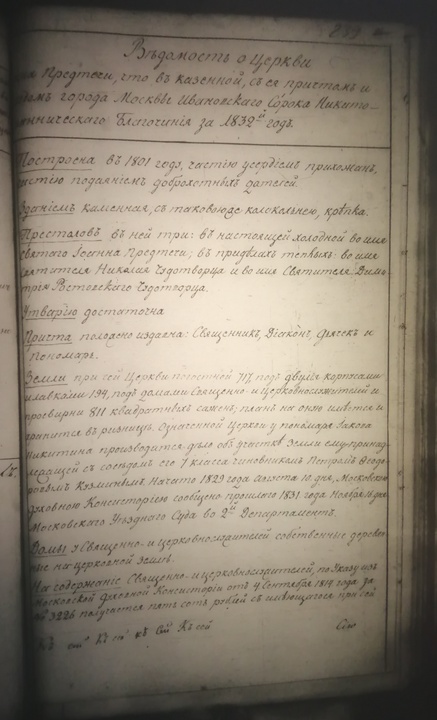 Вѣдомость о Церкви
Предтечи, что въ казенной, съ ея причтомъ и
города Москвы Ивановскаго Сорока Никито-
Благочинія за 1832й годъ.
Построена въ 1801 году, частію усердіемъ прихожанъ,
частію подаяніемъ доброхотныхъ дателей.
Зданіемъ каменная, съ таковоюже колокольнею, крѣпка.
Престоловъ въ ней три: въ настоящей холодной во имя
святаго Іоанна Предтечи; въ придѣлахъ теплыхъ: во имя
святителя Николая Чудотворца и во имя Святителя Дими-
трія Ростовскаго Чудотворца.
Утварію достаточна
Причта положено издавна: Священникъ, Діаконъ, Дьячекъ и
Пономарь.
Земли при сей Церкви погостной 717, подъ двумя корпусами
лавками 194, подъ домами Священно- и церковнослужителей и
просвирни 811 квадратныхъ саженъ; планъ на оную имѣется и
хранится въ ризницѣ. Означенной Церкви у пономаря Іакова
Никитина производится дѣло объ участкѣ земли ему принад-
лежащей съ сосѣдомъ его 7 класса чиновникомъ Петромъ
Начато 1829 года августа 10 дня, Московскою
Духовною Консисторіею сообщено прошлаго 1831 года Ноября дня
Московскаго Уѣзднаго Суда во 2й Департаментъ.
Домы у Священно- и церковнослужителей собственные деревян-
ные на церковной землѣ.
На содержаніе Священно- и церковнослужителей, по Указу изъ
Московской Духовной Консисторіи отъ 4 Сентября 1817 года за
№ 3226 получается пять сотъ рублей съ имѣющагося при сей
Къ сей